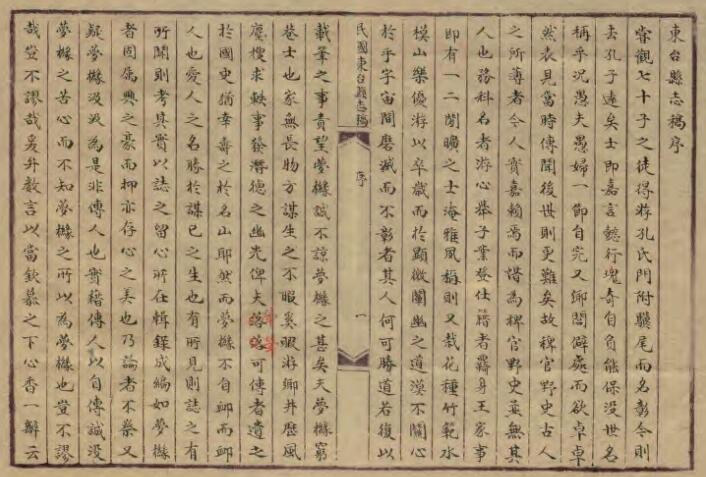 東台縣志稿序
常觀七十子之徒得游孔氏門附驥尾而名彰今則
去孔子遠矣士即嘉言懿行瑰奇自負能保没世名
稱乎況愚夫愚婦一節自完又鄉閭僻處而欲卓卓
然表見當時傳聞後世則更難矣故稗官野史古人
之所薄者今人實嘉賴焉而謂為稗官野史蓋無其
人也務科名者游心舉子業登仕籍者羈身王家事
即有一二閒曠之士淹雅風稱則又栽花種竹範水
模山樂優游以卒歲而於顯微闡幽之道漠不關心
於乎宇宙間磨滅而不彰者其人何可勝道若復以
民國東台縣志稿
序
一
載筆之事責望夢㰖誠不諒夢㰖之甚矣夫夢㰖窮
巷士也家無長物方謀生之不暇奚暇游鄉井歷風
塵搜求軼事發潛德之幽光俾夫落落可傳者遺之
於國史猶幸壽之於名山耶然而夢㰖不自卹而卹
人也愛人之名勝於謀己之生也有所見則誌之有
所聞則考其實以誌之留心所在輯錄成編如夢㰖
者固屬興之豪而抑亦存心之美也乃論者不察又
疑夢㰖汲汲為是非傳人也實藉傳人以自傳誠没
夢㰖之苦心而不知夢㰖之所以為夢㰖也豈不謬
哉豈不謬哉爰升數言以當欽慕之下心香一瓣云